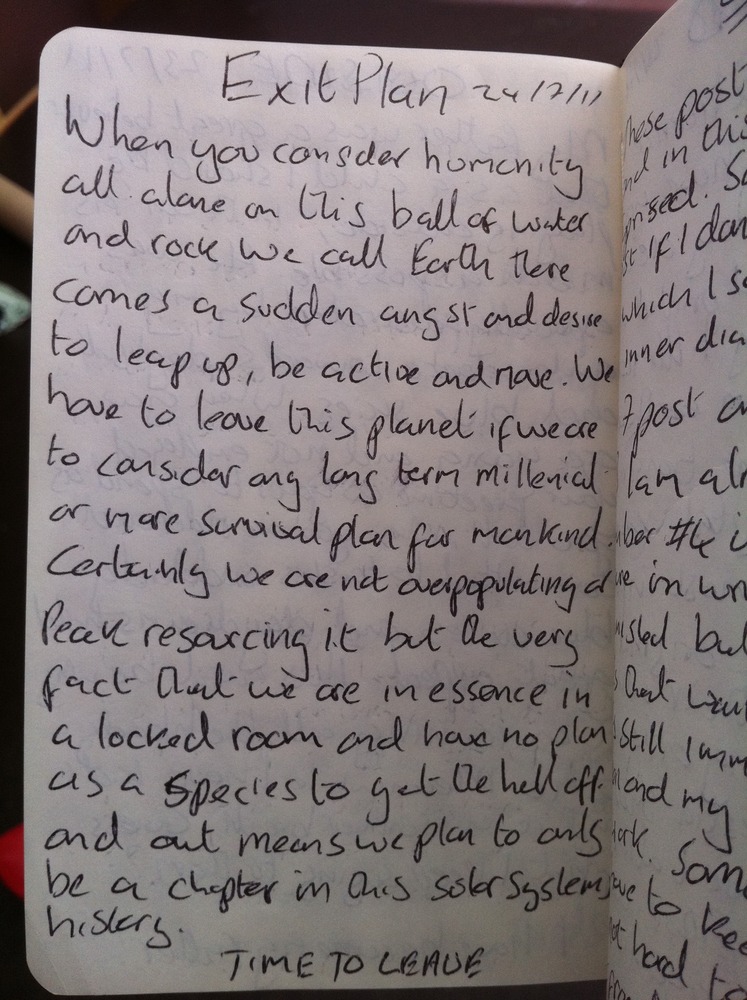 Exit Plan 24/7/11
When you consider humanity
all alone on this ball of water
and rock we call Earth there
comes a sudden angst and desire
to leap up, be active and move. We
have to leave this planet if we are
to consider any long term millenial
or more survival plan for mankind.
Certainly we are not overpopulating or
Peak resourcing it but the very
fact that we are in essence in
a locked room and have no plan
as a species to get the hell off
and out means we plan to only
be a chapter in this solar systems
history.
TIME TO LEAVE
hose post
nd in this
rised. So
st if I don
which I s
inner dia
7 post a
I am alr
ber #6 i
re in wr
isled but
s that wan
still imm
and my
ork. Som
ave to kee
ot hard to